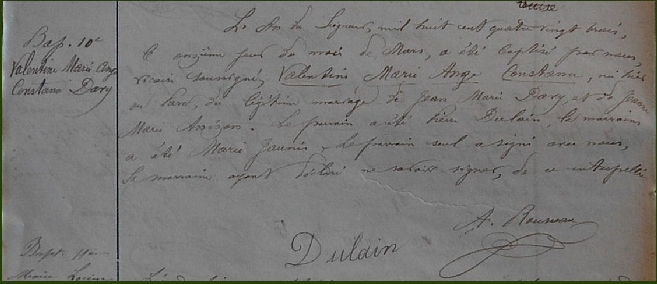 Bap. 10e
Valentin Marie Ange
Constant Dary
L'An du Seigneur, mil huit cent quatre vingt trois,
le onzième jour du mois de Mars, a été baptisé par nous,
vicaire soussigné, Valentin Marie Ange Constant, né hier
au Port, du légitime mariage de Jean Marie Dary, et de Jeanne
Marie. Le parrain a été Pierre Dulain, la marraine
a été Marie. le parrain seul a signé avec nous,
la marraine ayant déclaré ne savoir signer, de ce interpellée
A. Rousseau
Dulain
Bapt. 11e
Marie